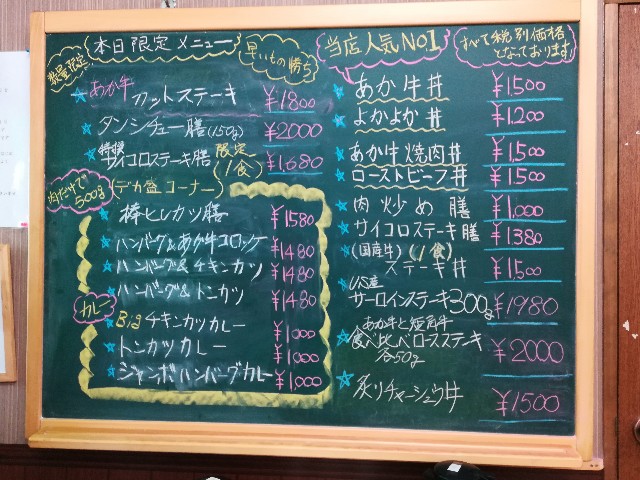 本日限定メニュー
数量限定
早いもの勝ち
あか牛
カットステーキ ¥1800
タンシチュー膳(150g) ¥2000
特撰
サイコロステーキ膳 限定1食 ¥1,680
肉だけで500g
(デカ盛コーナー)
棒ヒレカツ膳 ¥1,580
ハンバーグ&あか牛コロッケ ¥1480
ハンバーグ&チキンカツ ¥1480
ハンバーグ&トンカツ ¥1480
カレー
Bigチキンカツカレー ¥1000
トンカツカレー ¥1,000
ジャンボハンバーグカレー ¥1,000
当店人気No1
すべて税別価格となっております
あか牛丼 ¥1,500
よかよか丼 ¥1,200
あか牛焼肉丼 ¥1,500
ローストビーフ丼 ¥1,500
肉炒め膳 ¥1,000
サイコロステーキ膳 ¥1380
(国産牛)(1食)
ステーキ丼 ¥1,500
US産
サーロインステーキ300g ¥1980
あか牛と短角牛
食べ比べロースステーキ ¥2000
各50g
炙りチャーシュウ丼 ¥1500